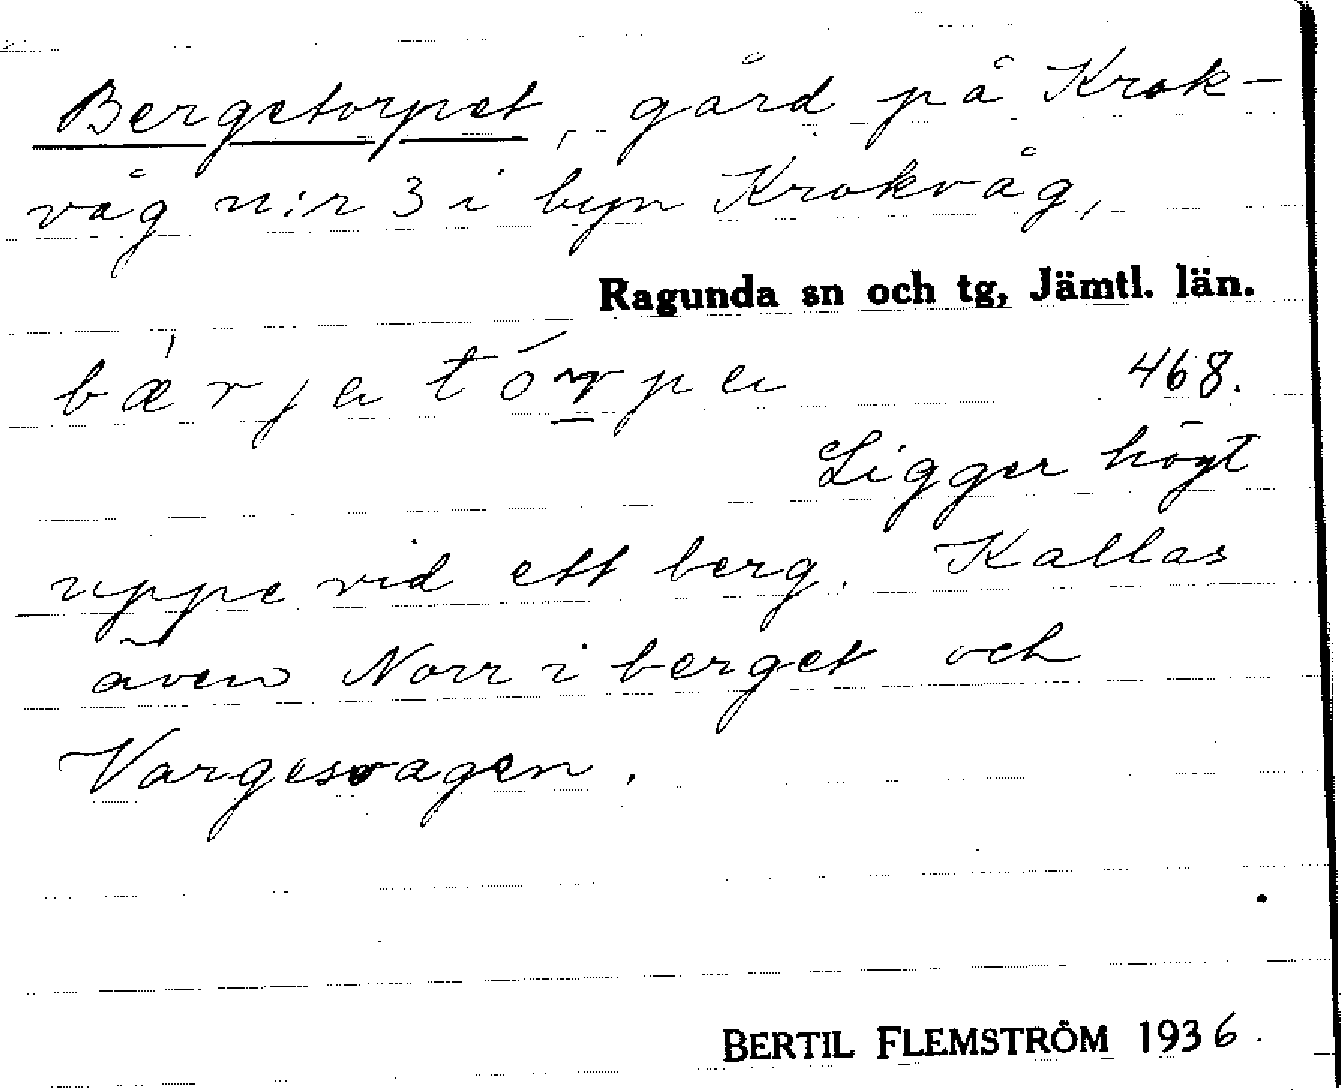 Bergetorpet, gård på Krok-
våg n:r 3 i byn Krokvåg,
Ragunda sn och tg, Jämtl. län.
468.
Ligger högt
uppe vid ett berg. Kallas
även Norr i berget och
Vargesvagen.
BERTIL FLEMSTRÖM 1936.